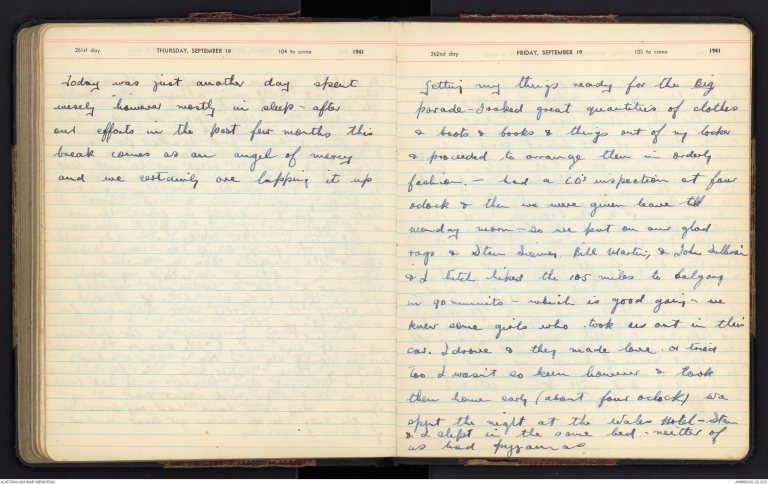 261st day THURSDAY, SEPTEMBER 18 104 to come 1941
Today was just another day spent
wisely however mostly in sleep - after
our efforts in the past few months this
break comes as an angel of mercy
and we certainly are lapping it up
262nd day FRIDAY, SEPTEMBER 19 103 to come 1941
Getting my things ready for the Big
parade - I raked great quantities of clothes
& boots & books & things out of my locker
& proceeded to arrange them in orderly
fashion. - had a CO's inspection at four
oclock & then we were given leave till
monday morn - so we put on our glad
rags & Stan Bill Martin, & John Sullivan
& I hitch hiked the 105 miles to Calgary
in 90 minuits - which is good going - we
knew some girls who took us out in their
car. I drove & they made love. or tried
too I wasn't so keen however & took
them home early (about four oclock) we
spent the night at the Wales Hotel - Stan
& I slept in the same bed - neither of
us had pyjamas.
AUSTRALIAN WAR MEMORIAL